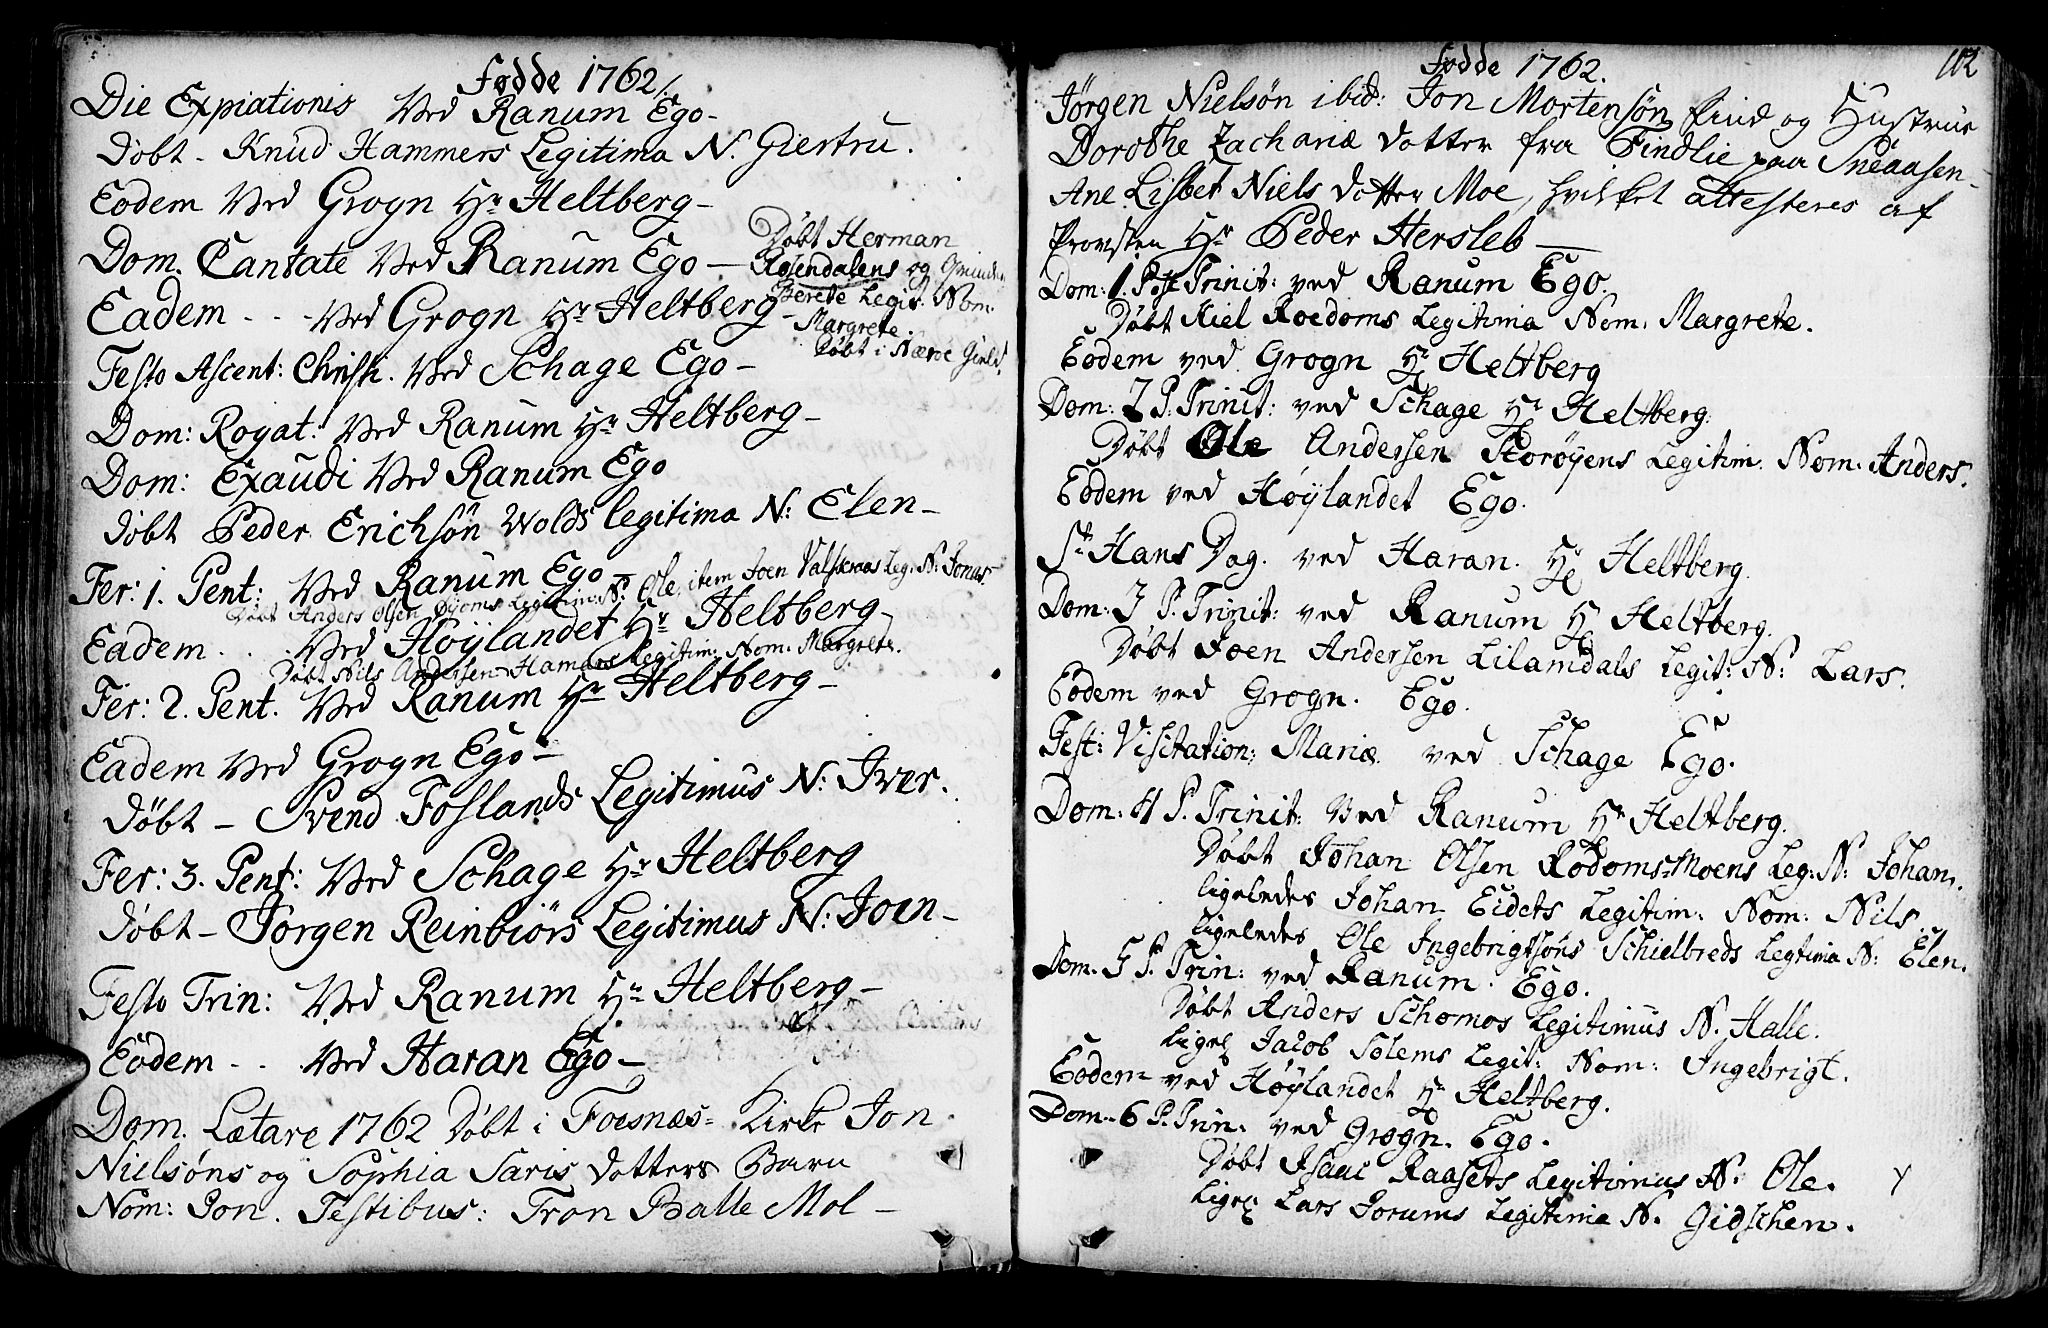 Fødde 1762.
Die Expiationis Ved Ranum Ego -
Døbt - Knud Hammers Legitima N. Giertru.
Eodem Ved Grogn Hr Heltberg -
Dom. Cantate Ved Ranum Ego -
Døbt Herman
Rosendalens og
Berete Legit. Nom.
Margrete.
Døbt i Nærøe Gield.
Eadem - - - Ved Grogn Hr Heltberg -
Festo Ascent: Christi. Ved Schage Ego -
Dom: Rogat: Ved Ranum Hr Heltberg -
Dom: Exaudi Ved Ranum Ego
Døbt Peder Erichsøn Wolds legitima N: Elen -
Fer: 1. Pent: Ved Ranum Ego -
Døbt Anders Olsen Øyoms Legitim: N: Ole, item Joen Leg: N: Jonas
Eadem . . . Ved Høylandet Hr Heltberg -
Døbt Nils Andersen Hamans Legitim: Nom: Margrete.
Fer: 2. Pent. Ved Ranum Hr Heltberg -
Eadem Ved Grogn Ego -
Døbt - Svend Foslands Legitimus N: Iver.
Fer: 3. Pent: Ved Schage Hr Heltberg
Døbt - Jørgen Reinbiørs Legitimus N: Joen -
Festo Trin: Ved Ranum Hr Heltberg -
Eodem - . . Ved Haran Ego -
Dom. Lætare 1762 Døbt i Foesnæs= Kirke Jon
Nielsøns og Sophia Saris Dotters Barn
Nom: Jon. Testibus: Tron Balle Mol -
Fødde 1762.
112
Jørgen Nielsøn ibid: Jon Mortensøn og Hustrue
Dorothe Zachariæ Dotter fra Findlie paa Sneaasen -
Ane Lisbet Niels Dotter Moe, hvilket attesteres af
Provsten Hr Peder Hersleb -
Dom: 1. Post Trinit: ved Ranum Ego.
Døbt Kiel Roedoms Legitima Nom. Margrete.
Eodem ved Grogn Hr Heltberg
Dom: 2 P. Trinit: ved Schage Hr Heltberg.
Døbt Ole Andersen Storøyens Legitim. Nom: Anders.
Eodem ved Høylandet Ego.
St Hans Dag. ved Haran. Hr Heltberg.
Dom: 3 P. Trinit: ved Ranum Hr Heltberg.
Døbt Joen Andersen Lilamdals Legit: N: Lars.
Eodem ved Grogn. Ego.
Fest: Visitation: Mariæ ved Schage Ego.
Dom: 4 P. Trinit: Ved Ranum Hr Heltberg.
Døbt Johan Olsen Rodoms-Moens Leg: N: Johan.
ligeledes Johan Eidets Legitim: Nom: Nils.
Ligeledes Ole Ingebrigtsøns Schielbreds Legtima N: Elen.
Dom. 5 P. Trin: ved Ranum. Ego.
Døbt Anders Schomos Legitimus N. Halle.
Ligel Jacob Solems Legit: Nom: Ingebrigt.
Eodem ved Høylandet Hr Heltberg.
Dom. 6 P. Trin. ved Grogn. Ego.
Døbt Isaac Raasets Legitimus N. Ole.
Ligel Lars Forums Legitima N. Gidschen.